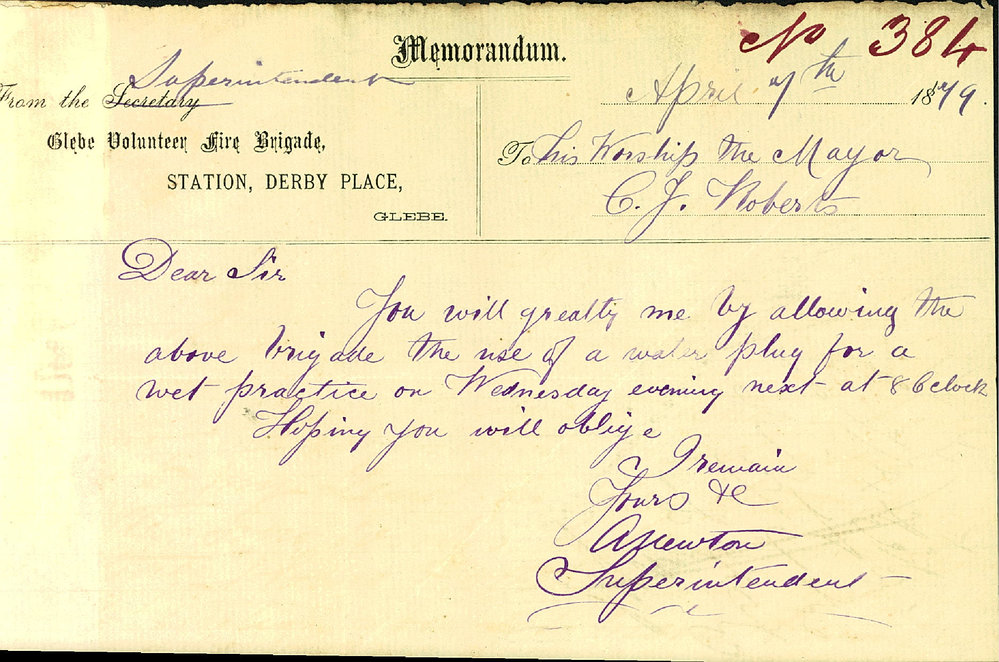 Memorandum.
No 384
Superintendent
From the Secretary
April 7th 1879.
Glebe Volunteer Fire Brigade,
STATION, DERBY PLACE,
GLEBE.
To his Worship the Mayor
C. J. Roberts
Dear Sir
You will greatly me by allowing the
above brigade the use of a water plug for a
wet practice on Wednesday evening next at 8 Oclock
Hoping you will oblige
I remain
Yours &c
A Newton
Superintendent